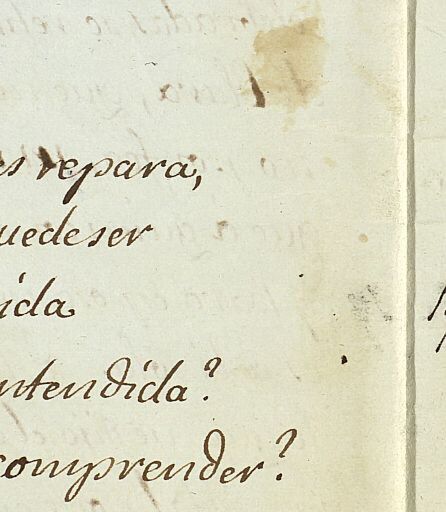 es repara,
uedeser
ida
ntendida?
comprender?